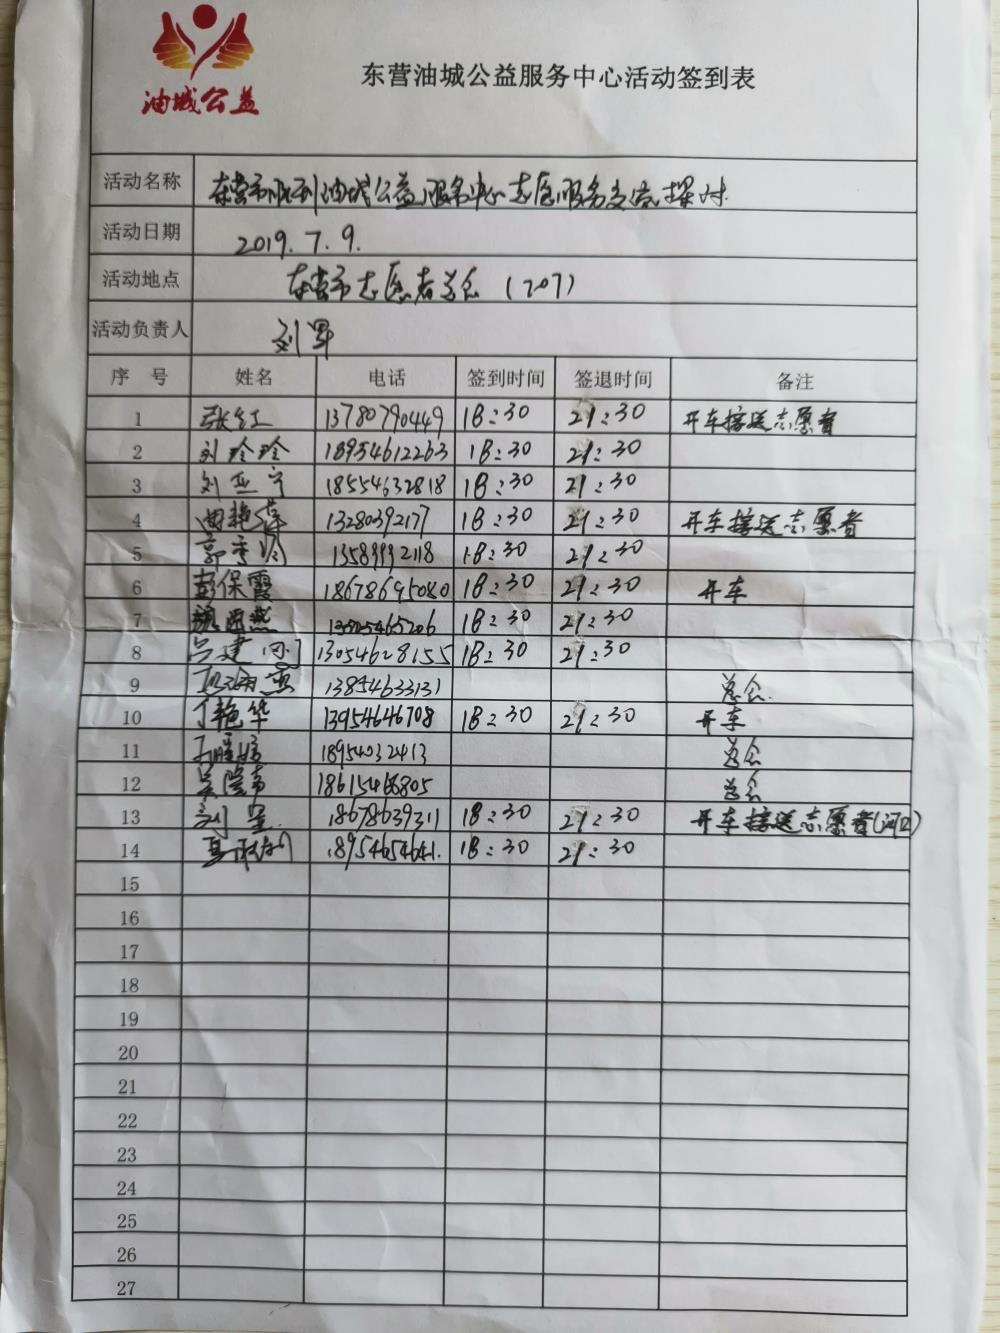 油城公益
东营油城公益服务中心活动签到表
活动名称 东营市胜利油城公益服务中心志愿服务交流探讨
活动日期 2019.7.9.
活动地点 东营市志愿者总会（207）
活动负责人 刘军
序号 姓名 电话 签到时间 签退时间 备注
1 张红 13780790449 18:30 21:30 开车接送志愿者
2 刘玲玲 18954612263 18:30 21:30
3 刘亚宁 18554632818 18:30 21:30
4 曲艳萍 13280392177 18:30 21:30 开车接送志愿者
5 13589992118 18:30 21:30
6 彭保霞 18678695080 18:30 21:30 开车
7 18:30 21:30
8 吕建 13054628155 18:30 21:30
9 13854633131 总会.
10 丁艳华 13954646708 18:30 21:30 开车
11 18954032413 总会
12 18615468805 总会
13 18678639311 18:30 21:30 开车接送志愿者（河口）
14 18954654641. 18:30 21:30
15
16
17
18
19
20
21
22
23
24
25
26
27